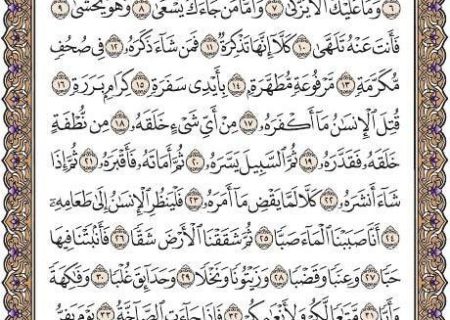 ۝٦ وَمَا عَلَيْكَ أَلَّا يَزَّكَّىٰ ۝٧ وَأَمَّا مَن جَآءَكَ يَسْعَىٰ ۝٨ وَهُوَ يَخْشَىٰ ۝٩
فَأَنتَ عَنْهُ تَلَهَّىٰ ۝١٠ كَلَّآ إِنَّهَا تَذْكِرَةٌ ۝١١ فَمَن شَآءَ ذَكَرَهُۥ ۝١٢ فِي صُحُفٍ
مُّكَرَّمَةٍ ۝١٣ مَّرْفُوعَةٍ مُّطَهَّرَةٍۭ ۝١٤ بِأَيْدِي سَفَرَةٍ ۝١٥ كِرَامٍۭ بَرَرَةٍ ۝١٦
قُتِلَ ٱلْإِنسَٰنُ مَآ أَكْفَرَهُۥ ۝١٧ مِنْ أَيِّ شَيْءٍ خَلَقَهُۥ ۝١٨ مِن نُّطْفَةٍ
خَلَقَهُۥ فَقَدَّرَهُۥ ۝١٩ ثُمَّ ٱلسَّبِيلَ يَسَّرَهُۥ ۝٢٠ ثُمَّ أَمَاتَهُۥ فَأَقْبَرَهُۥ ۝٢١ ثُمَّ إِذَا
شَآءَ أَنشَرَهُۥ ۝٢٢ كَلَّا لَمَّا يَقْضِ مَآ أَمَرَهُۥ ۝٢٣ فَلْيَنظُرِ ٱلْإِنسَٰنُ إِلَىٰ طَعَامِهِۦٓ
۝٢٤ أَنَّا صَبَبْنَا ٱلْمَآءَ صَبًّا ۝٢٥ ثُمَّ شَقَقْنَا ٱلْأَرْضَ شَقًّا ۝٢٦ فَأَنۢبَتْنَا فِيهَا
حَبًّا ۝٢٧ وَعِنَبًا وَقَضْبًا ۝٢٨ وَزَيْتُونًا وَنَخْلًا ۝٢٩ وَحَدَآئِقَ غُلْبًا ۝٣٠ وَفَٰكِهَةً
وَأَبًّا ۝٣١ مَّتَٰعًا لَّكُمْ وَلِأَنْعَٰمِكُمْ ۝٣٢ فَإِذَا جَآءَتِ ٱلصَّآخَّةُ ۝٣٣ يَوْمَ يَفِرُّ